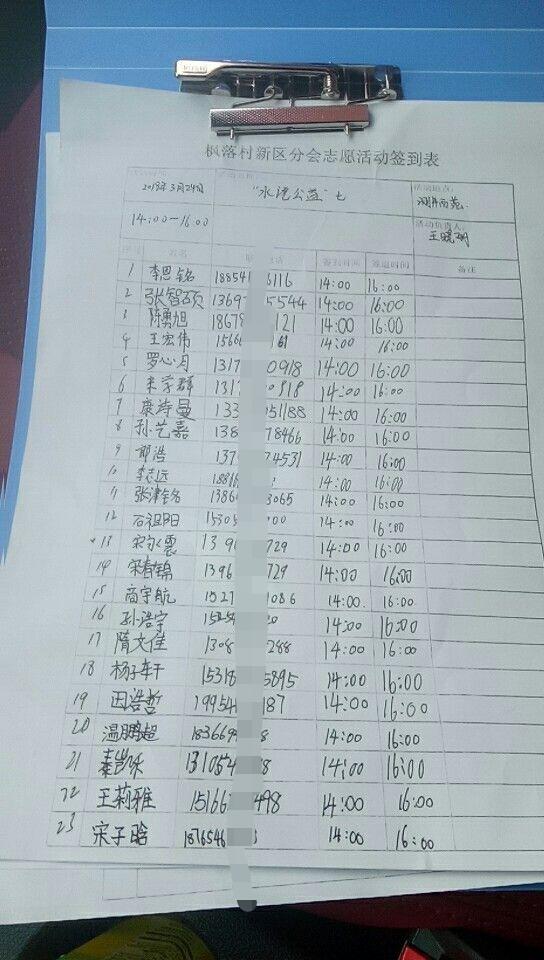 枫落村新区分会志愿活动签到表
活动时间: 活动名称: 活动地点:
2018年3月24日 "水泥公益"七
14:00—16:00 活动负责人: 王晓明
序号 姓名 联系电话 签到时间 签退时间 备注
1 李恩铭 18854 6116 14:00 16:00
2 张智硕 1369 5544 14:00 16:00
3 陈勇旭 18678 121 14:00 16:00
4 王宏伟 1566 61 14:00 16:00
5 罗心月 1317 0918 14:00 16:00
6 学群 1317 0918 14:00 16:00
7 康诗曼 133 051188 14:00 16:00
8 孙艺嘉 138 78466 14:00 16:00
9 郭浩 1370 74531 14:00 16:00
10 李志远 1881 14:00 16:00
11 张津铭 1386 3065 14:00 16:00
12 石祖阳 15305 00 14:00 16:00
13 宋 139 729 14:00 16:00
14 宋春锦 1396 729 14:00 16:00
15 商宇航 1527 1086 14:00 16:00
16 孙浩宇 14:00 16:00
17 隋文佳 1308 288 14:00 16:00
18 杨子轩 15318 5895 14:00 16:00
19 田浩哲 19954 187 14:00 16:00
20 温鹏超 183669 8 14:00 16:00
21 秦 131054 8 14:00 16:00
22 王莉雅 15166 498 14:00 16:00
23 宋子晗 1876546 14:00 16:00